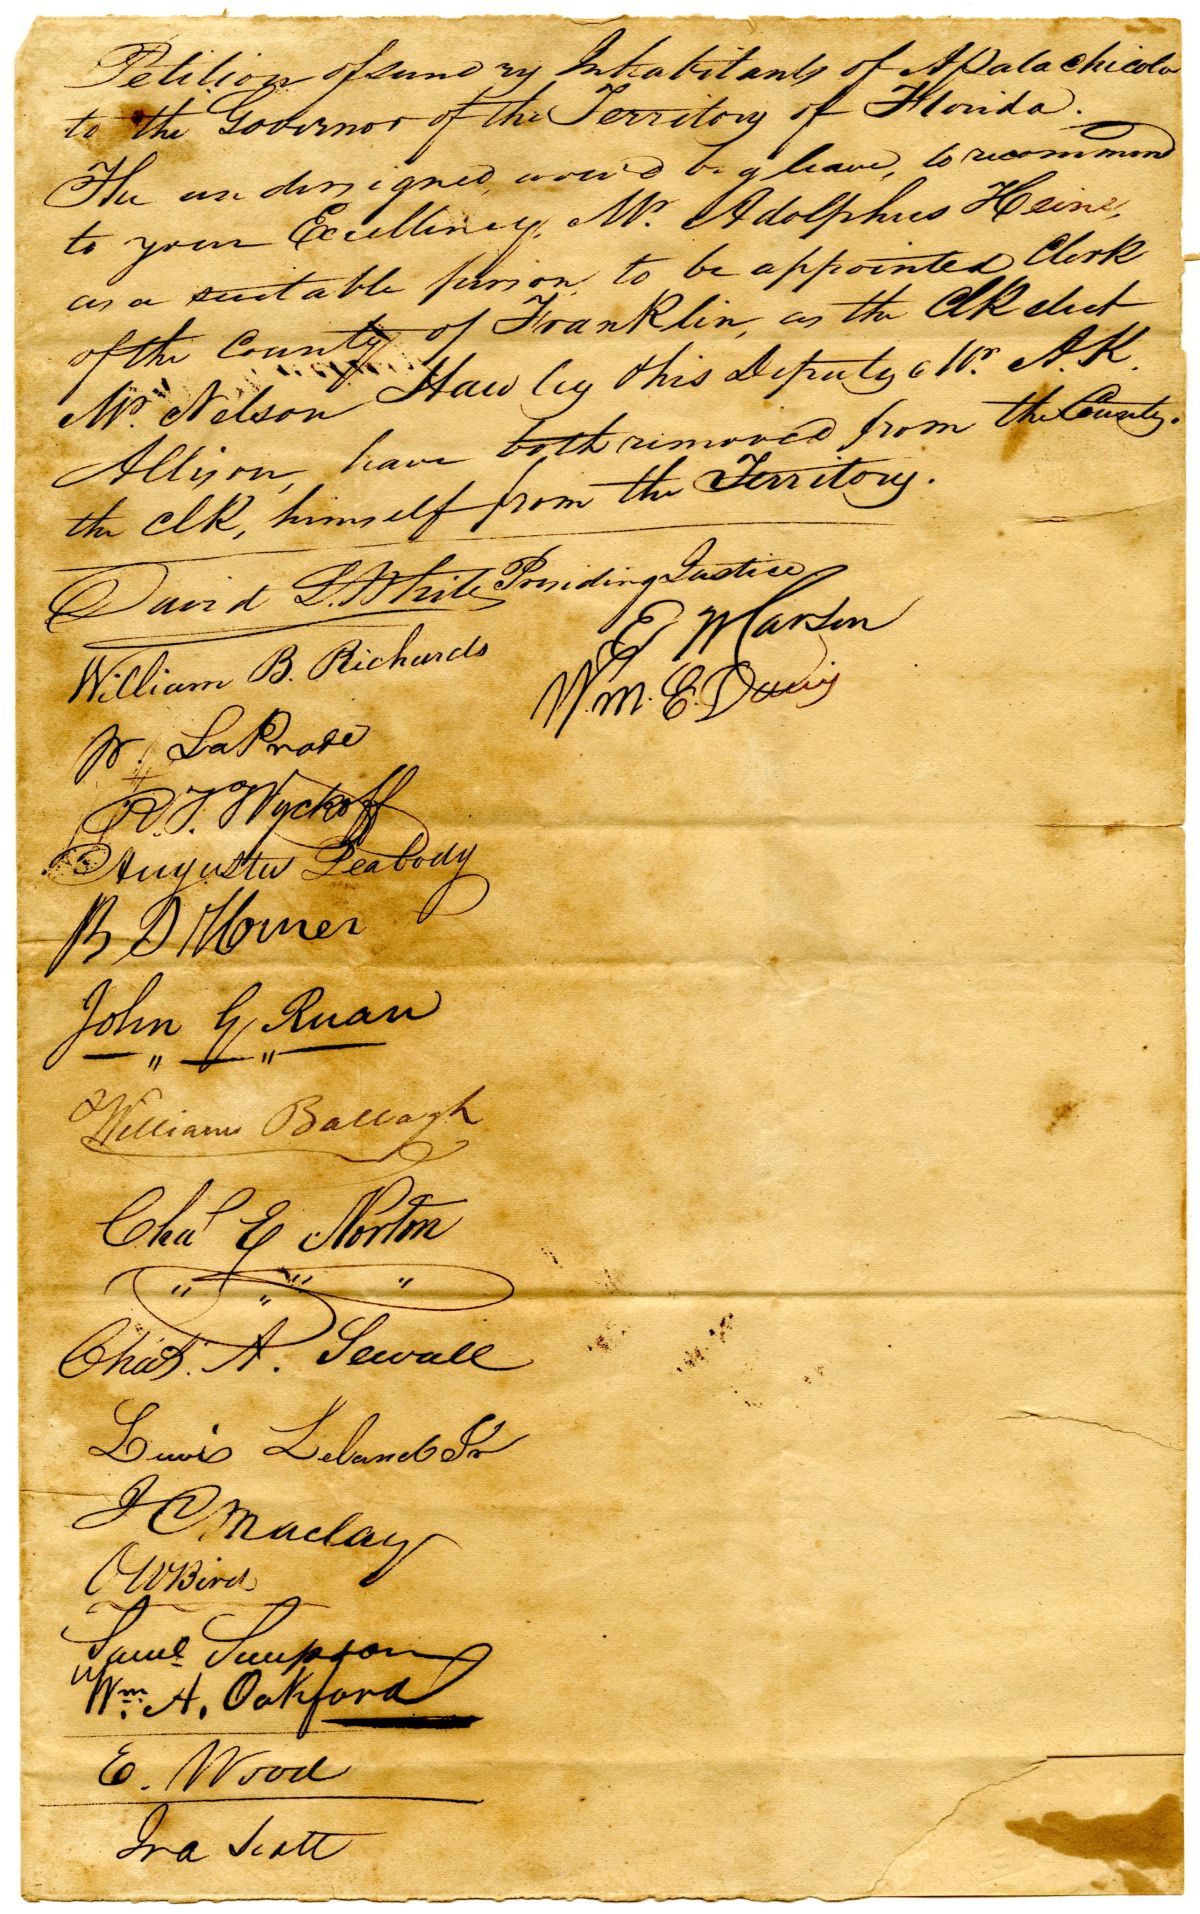 Petition of sundry Inhabitants of Apalachicola
to the Governor of the Territory of Florida.
The undersigned, would beg leave, to recommend
to your Excellency, Mr. Adolphus Heine,
as a suitable person, to be appointed Clerk
of the County of Franklin, as the Clk elect
Mr. Nelson Hawley & his Deputy Mr. A.K.
Allison, have both removed from the County.
the Clk, himself from the Territory.
David L. White Presiding Justice
William B. Richards
E Marson
Wm. E. Davis
R. T. Wyckoff
Augustus Peabody
John G Ruan
William Ballagh
Chas E Norton
Chas. A. Sewall
Lewis Leland Jr
J C Maclay
O W Bird
Saml Simpson
Wm. A. Oakford
E. Wood
Ira Scott